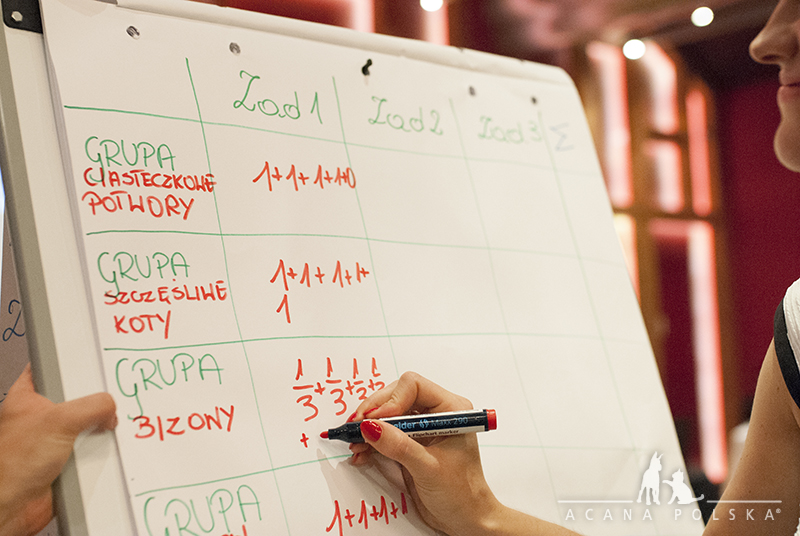 Zad 1 Zad 2 Zad 3 Σ
GRUPA
CIASTECZKOWE
POTWORY
1+1+1+1+0
GRUPA
SZCZĘŚLIWE
KOTY
1+1+1+1+
1
GRUPA
BIZONY
1/3+1/3+1/3+1/3
+
GRUPA
1+1+1+1
2
Maxx 290
ACANA POLSKA®